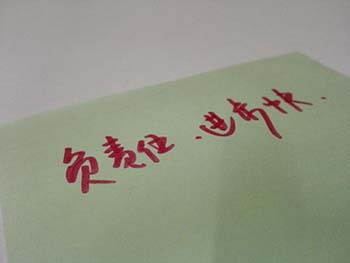 负责任.进步快.